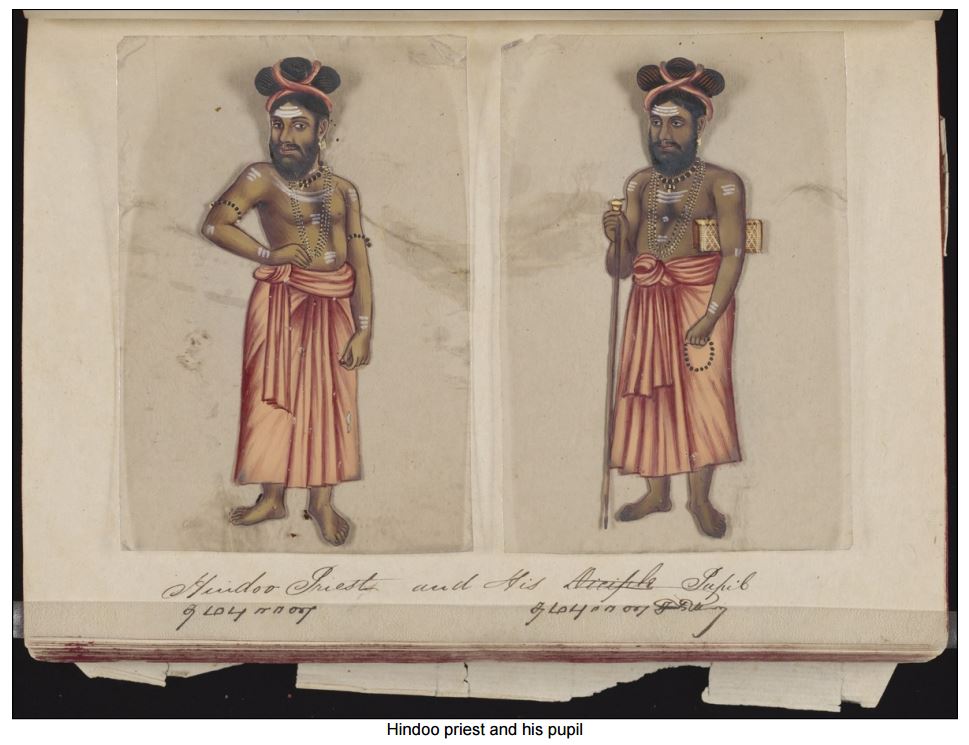 Hindoo Priest and His Diciple Pupil
தமபுரான தமபுரான
Hindoo priest and his pupil